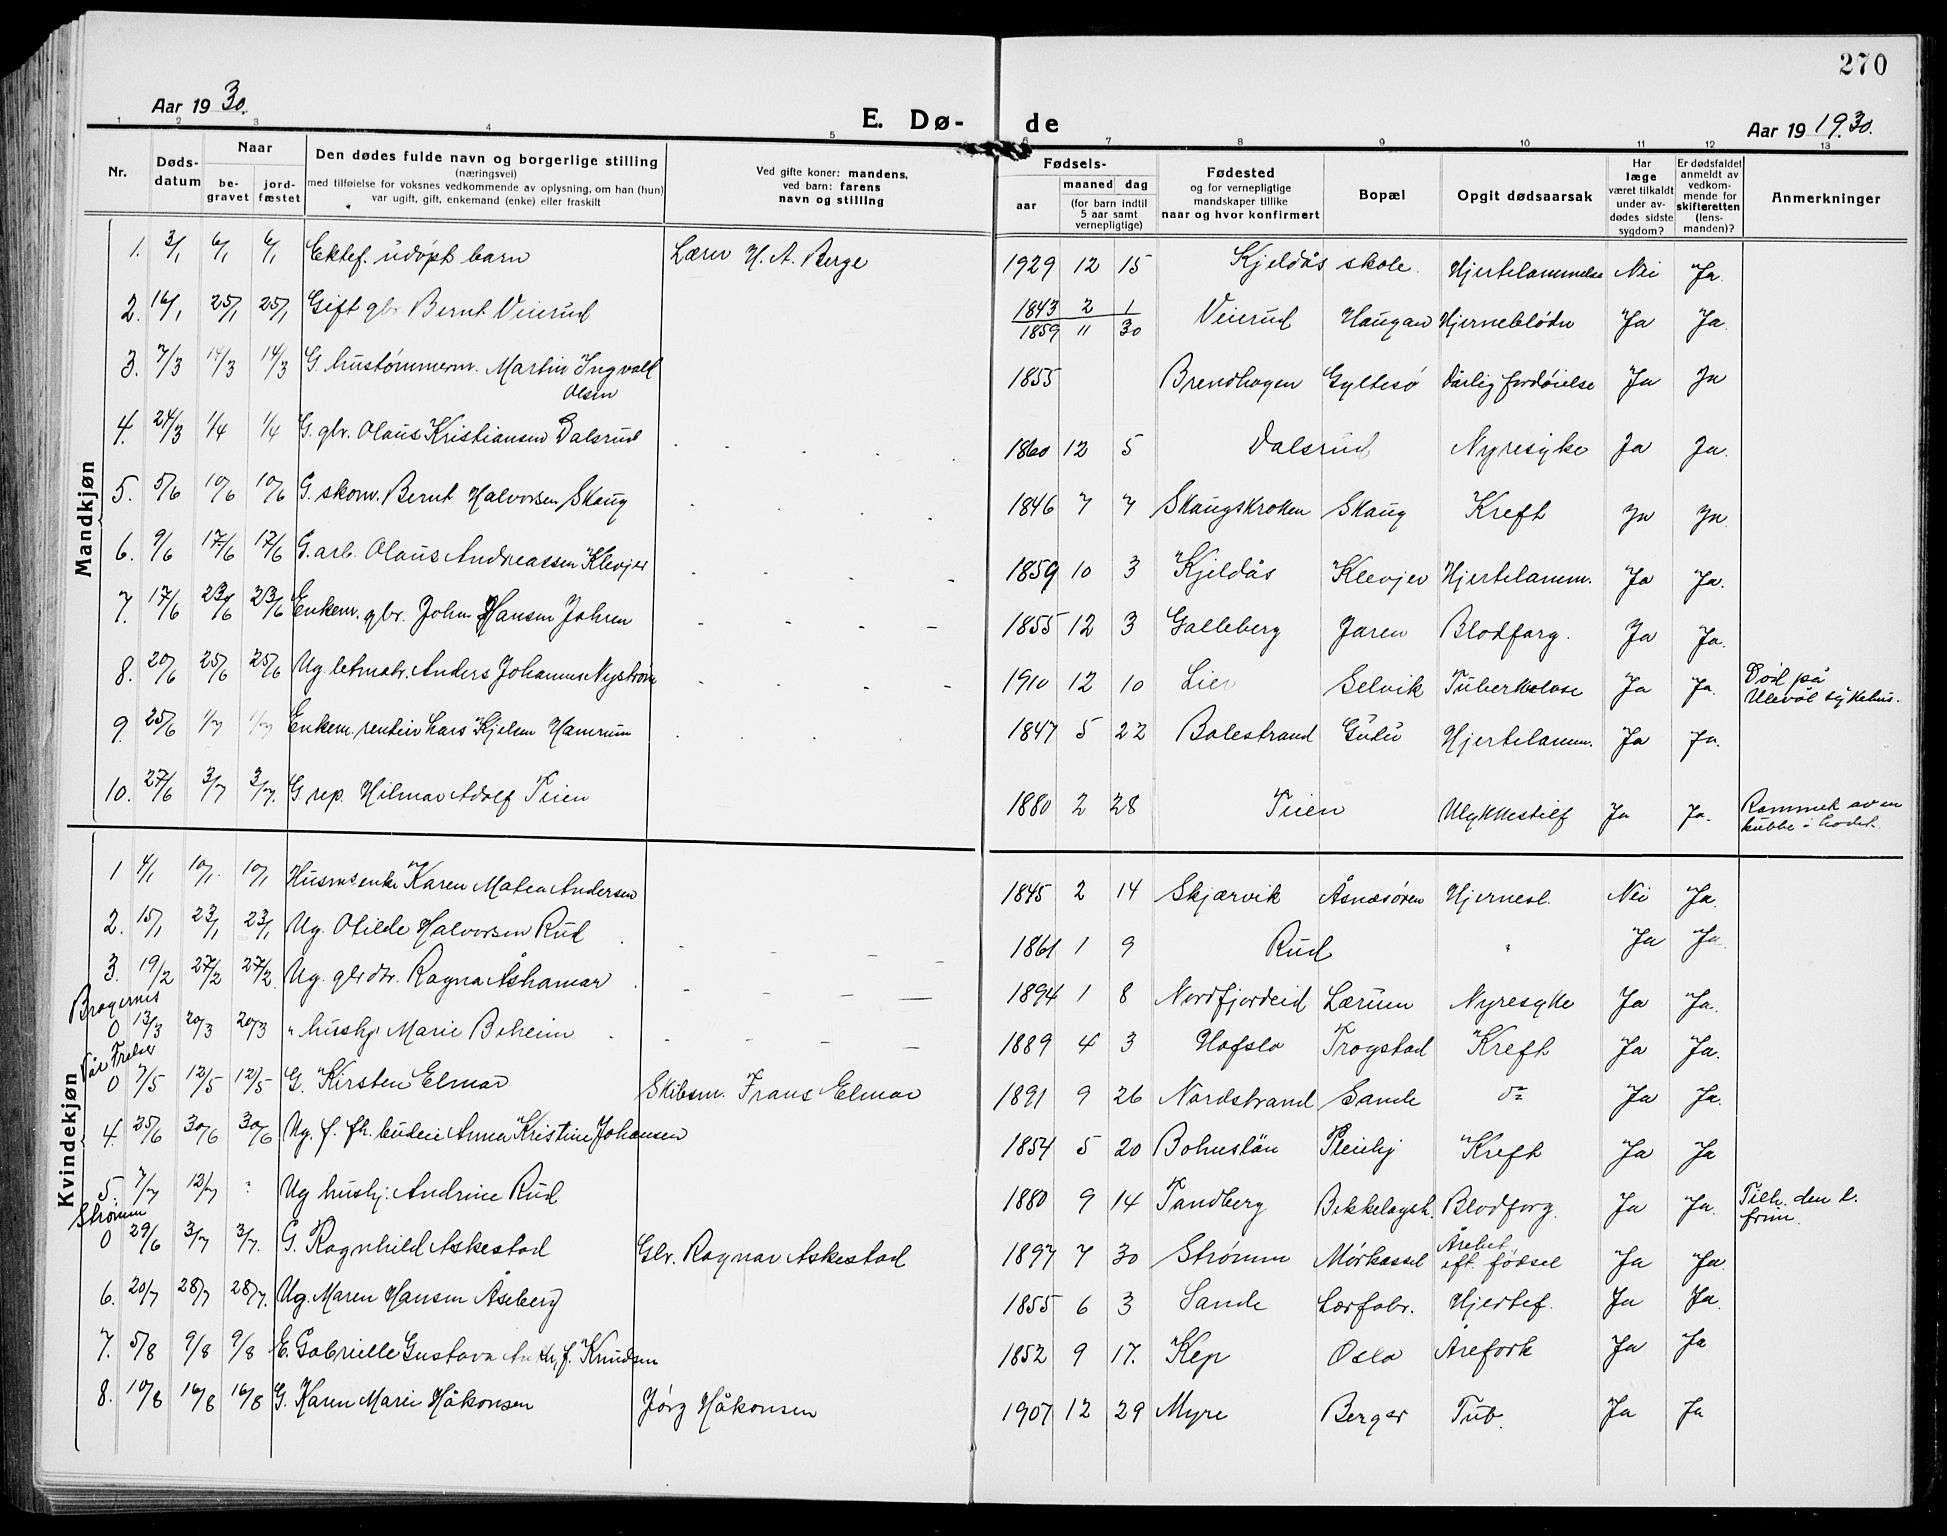 270
Aar 1930.
E. Dø-de
Aar 19 1930.
1 2 3 4 5 6 7 8 9 10 11 12 13
Nr.
Døds-datum
Naar
be-gravet
jord-fæstet
Den dødes fulde navn og borgerlige stilling
(næringsvei)
med tilføielse for voksnes vedkommende av oplysning, om han (hun)
var ugift, gift, enkemand (enke) eller fraskilt
Ved gifte koner: mandens,
ved barn: farens
navn og stilling
Fødsels-
aar
maaned dag
(for barn indtil
5 aar samt
vernepligtige)
Fødested
og for vernepligtige
mandskaper tillike
naar og hvor konfirmert
Bopæl
Opgit dødsaarsak
Har
læge
været tilkaldt
under av-
dødes sidste
sygdom?
Er dødsfaldet
anmeldt av
vedkom-
mende for
skifteretten
(lens-
manden)?
Anmerkninger
Mandkjøn
1. 3/1 6/1 6/1 Ektef. udøpt barn Lærer H. A. Berge 1929 12 15 Kjeldås skole. Hjertelammelse Nei Ja.
2. 16/1 25/1 25/1 Gift gbr. Bernt Veierud 1843 2 1 Veierud Haugan Hjerneblødn Ja Ja.
1859 11 30
3. 7/3 14/3 14/3 G. hustømmerm. Martin Ingvald 1855 Brendhagen Gyltesø Dårlig fordøielse Ja Ja
Olsen
4. 24/3 1/4 1/4 G. gbr. Olaus Kristiansen Dalsrud 1860 12 5 Dalsrud Nyresyke Ja Ja.
5. 5/6 10/6 10/6 G. skom. Bernt Halvorsen Skaug 1846 7 7 Skaugskroken Skaug Kreft Ja Ja.
6. 9/6 17/6 17/6 G. arb. Olaus Andreassen Klevjer 1859 10 3 Kjeldås Klevjer Hjertelamm. Ja Ja.
7. 17/6 23/6 23/6 Enkem. gbr. Johan Hansen Jahren 1855 12 3 Galleberg Jaren Blodforg. Ja Ja.
8. 20/6 25/6 25/6 Ug. letmatr. Anders Johannes Nystrøm 1910 12 10 Lier Selvik Tuberkulose Ja Ja. Død på
Ulevål sykehus.
9. 25/6 1/7 1/7 Enkem. rentier Lars Kjelsen Hamrum 1847 5 22 Balestrand Gutu Hjertelamm. Ja Ja.
10. 27/6 3/7 3/7. G rep. Hilmar Adolf Teien 1880 2 28 Teien Ulykkestilf Ja Ja. Rammet av en
kubbe i hodet.
Kvindekjøn
1 4/1 10/1. 10/1 Husmsenke Karen Matea Andersen 1845 2 14 Skjærvik Åsnesøren Hjernesl. Nei Ja.
2. 15/1 23/1 23/1 Ug. Otilde Halvorsen Rud 1861 1 9 Rud " Ja Ja.
3. 19/2 27/2 27/2. Ug. gbrdtr. Ragna Åshamar 1894 1 8 Nordfjordeid Lærum Nyresyke Ja Ja.
Bragernes
0 13/3 20/3 20/3 " hushj. Marie Beheim 1889 4 3 Hofslo Trogstad Kreft Ja Ja.
Vår Frelser
0 7/5 12/5 12/5 G. Kirsten Elmar Skibsm. Frans Elmar 1891 9 26 Nordstrand Sande do Ja Ja.
4. 25/6 30/6 30/6 Ug. f. fh. budeie Anna Kristine Johansen 1854 5 20 Bohuslän Pleiehj Kreft Ja Ja
5. 7/7 12/7 " Ug hushj. Andrine Rud 1880 9 14 Tandberg Bekkelagsh. Blodforg. Ja Ja. Tilh. den l.
frim.
Strømm
0 29/6 3/7 3/7. G. Ragnhild Askestad Gbr. Ragnar Askestad 1897 7 30 Strømm Mørkassel Årebet. eft. fødsel Ja Ja.
6. 20/7 28/7 28/7. Ug. Maren Hansen Åseberg 1855 6 3 Sande Lærfabr. Hjertef. Ja Ja.
7. 5/8 9/8 9/8 E. Gabrielle Gustava f. Knudsen 1852 9 17. Kep Oslo Årefork Ja Ja
8. 10/8 16/8 16/8 G. Karen Marie Håkonsen Jørg Håkonsen 1907 12 29 Myre Berger Tub. Ja Ja